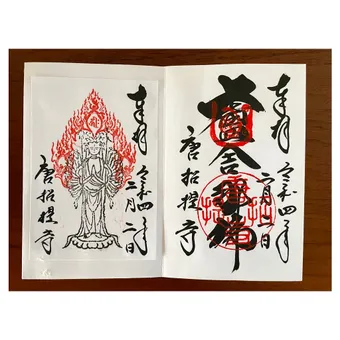 奉拝
令和四年
二月二日
盧舎那佛
唐招提寺
奉拝
令和四年
二月二日
唐招提寺